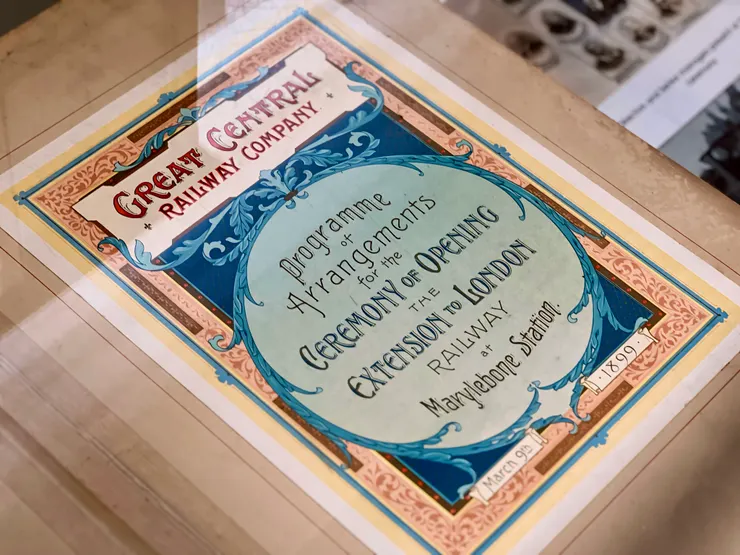 GREAT CENTRAL
RAILWAY COMPANY
programme
of
Arrangements
for the
CEREMONY OF OPENING
THE
EXTENSION TO LONDON
RAILWAY
at
Marylebone Station.
March 9th
1899.